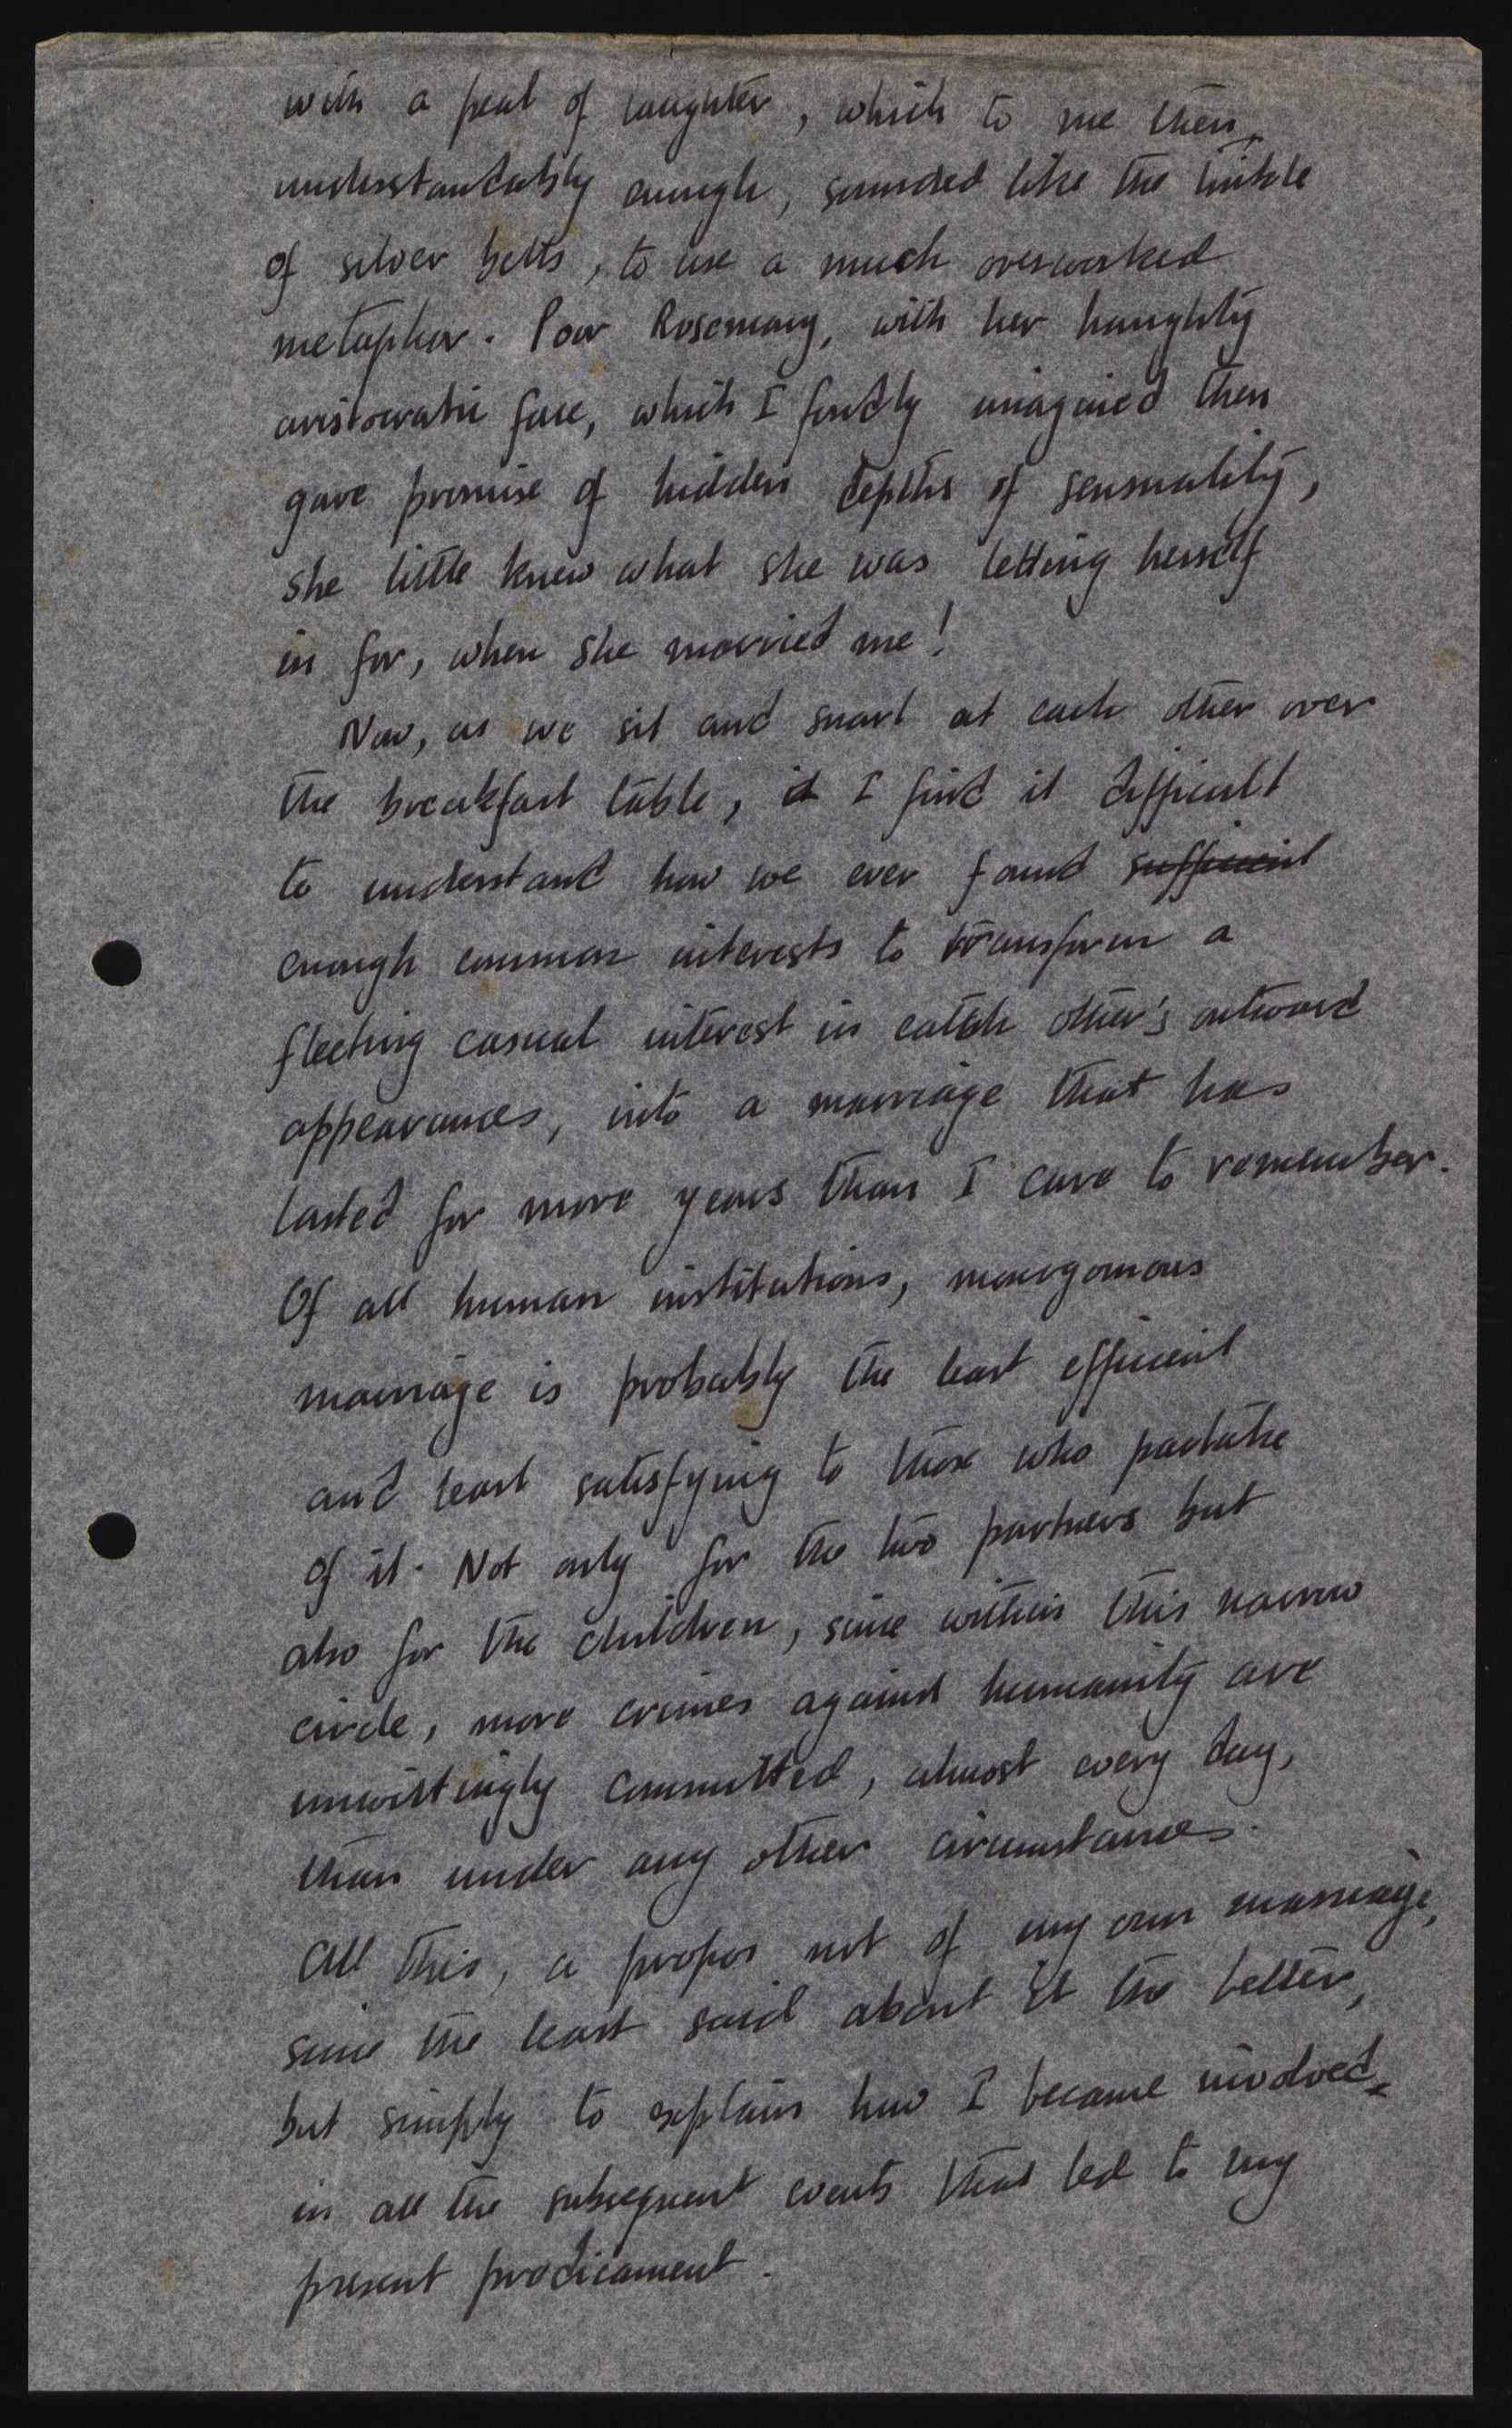 with a peal of laughter, which to me then,
understandably enough, sounded like the tinkle
of silver bells, to use a much overworked
metaphor. Poor Rosemary, with her haughty
aristocratic face, which I fondly imagined then
gave promise of hidden depths of sensuality,
she little knew what she was letting herself
in for, when she married me!
Now, as we sit and snarl at each other over
the breakfast table, it I find it difficult
to understand how we ever found sufficient
enough common interests to transform a
fleeting casual interest in eatch other's outward
appearances, into a marriage that has
lasted for more years than I care to remember.
Of all human institutions, monogomous
marriage is probably the least efficient
and least satisfying to those who partake
of it. Not only for the two partners but
also for the children, since within this narrow
circle, more crimes against humanity are
unwittingly committed, almost every day,
than under any other circumstances.
All this, a propos not of my own marriage,
since the least said about it the better,
but simply to explain how I became involved,
in all the subsequent events that led to my
present predicament.